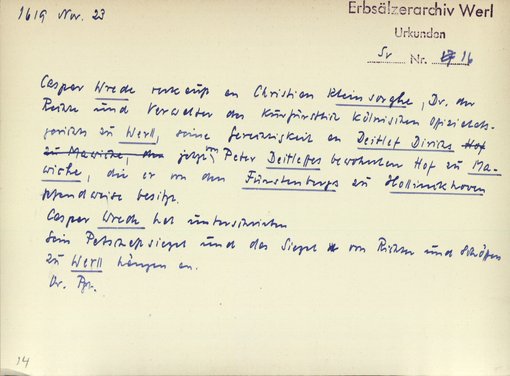 1619 Nov. 23
Erbsälzerarchiv Werl
Urkunden
Sr Nr. 17 16
Casper Wrede verkauft an Christian Kleinsorghe, Dr. der
Rechte und Verwalter des Kurfürstlich Kölnischen Offizialats-
gerichts zu Werl, seine Gerechtigkeit an Deitlef Dirichs Hof
zu Mawicke, den jetzt von Peter Deitleffes bewohnten Hof zu Ma-
wicke, die er von den Fürstenbergs zu Hollinckhoven
pfandweise besitzt.
Caspar Wrede hat unterschrieben
Sein Petschaftsiegel und das Siegel von Richter und Schöffen
zu Werll hängen an.
Or. Pgt.
14